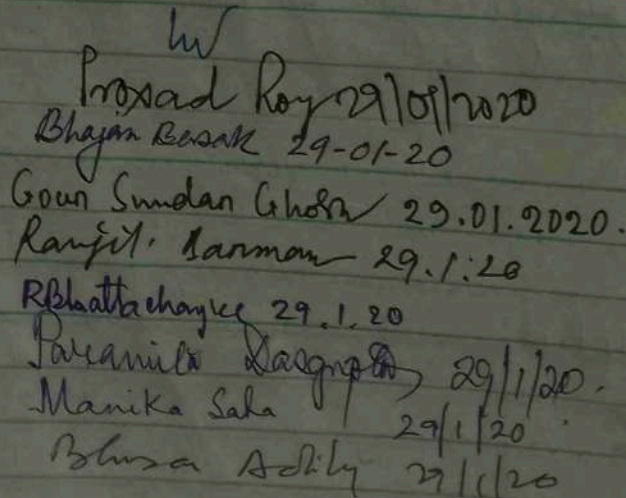 Prosad Roy 29/01/2020
Bhajan Basak 29-01-20
Gour Sundar Ghosh 29.01.2020.
Ranjit. Barman 29.1.20
RBhattacharyee 29.1.20
Paramita Dasgupta 29/1/20.
Manika Saha 29/1/20
29/1/20